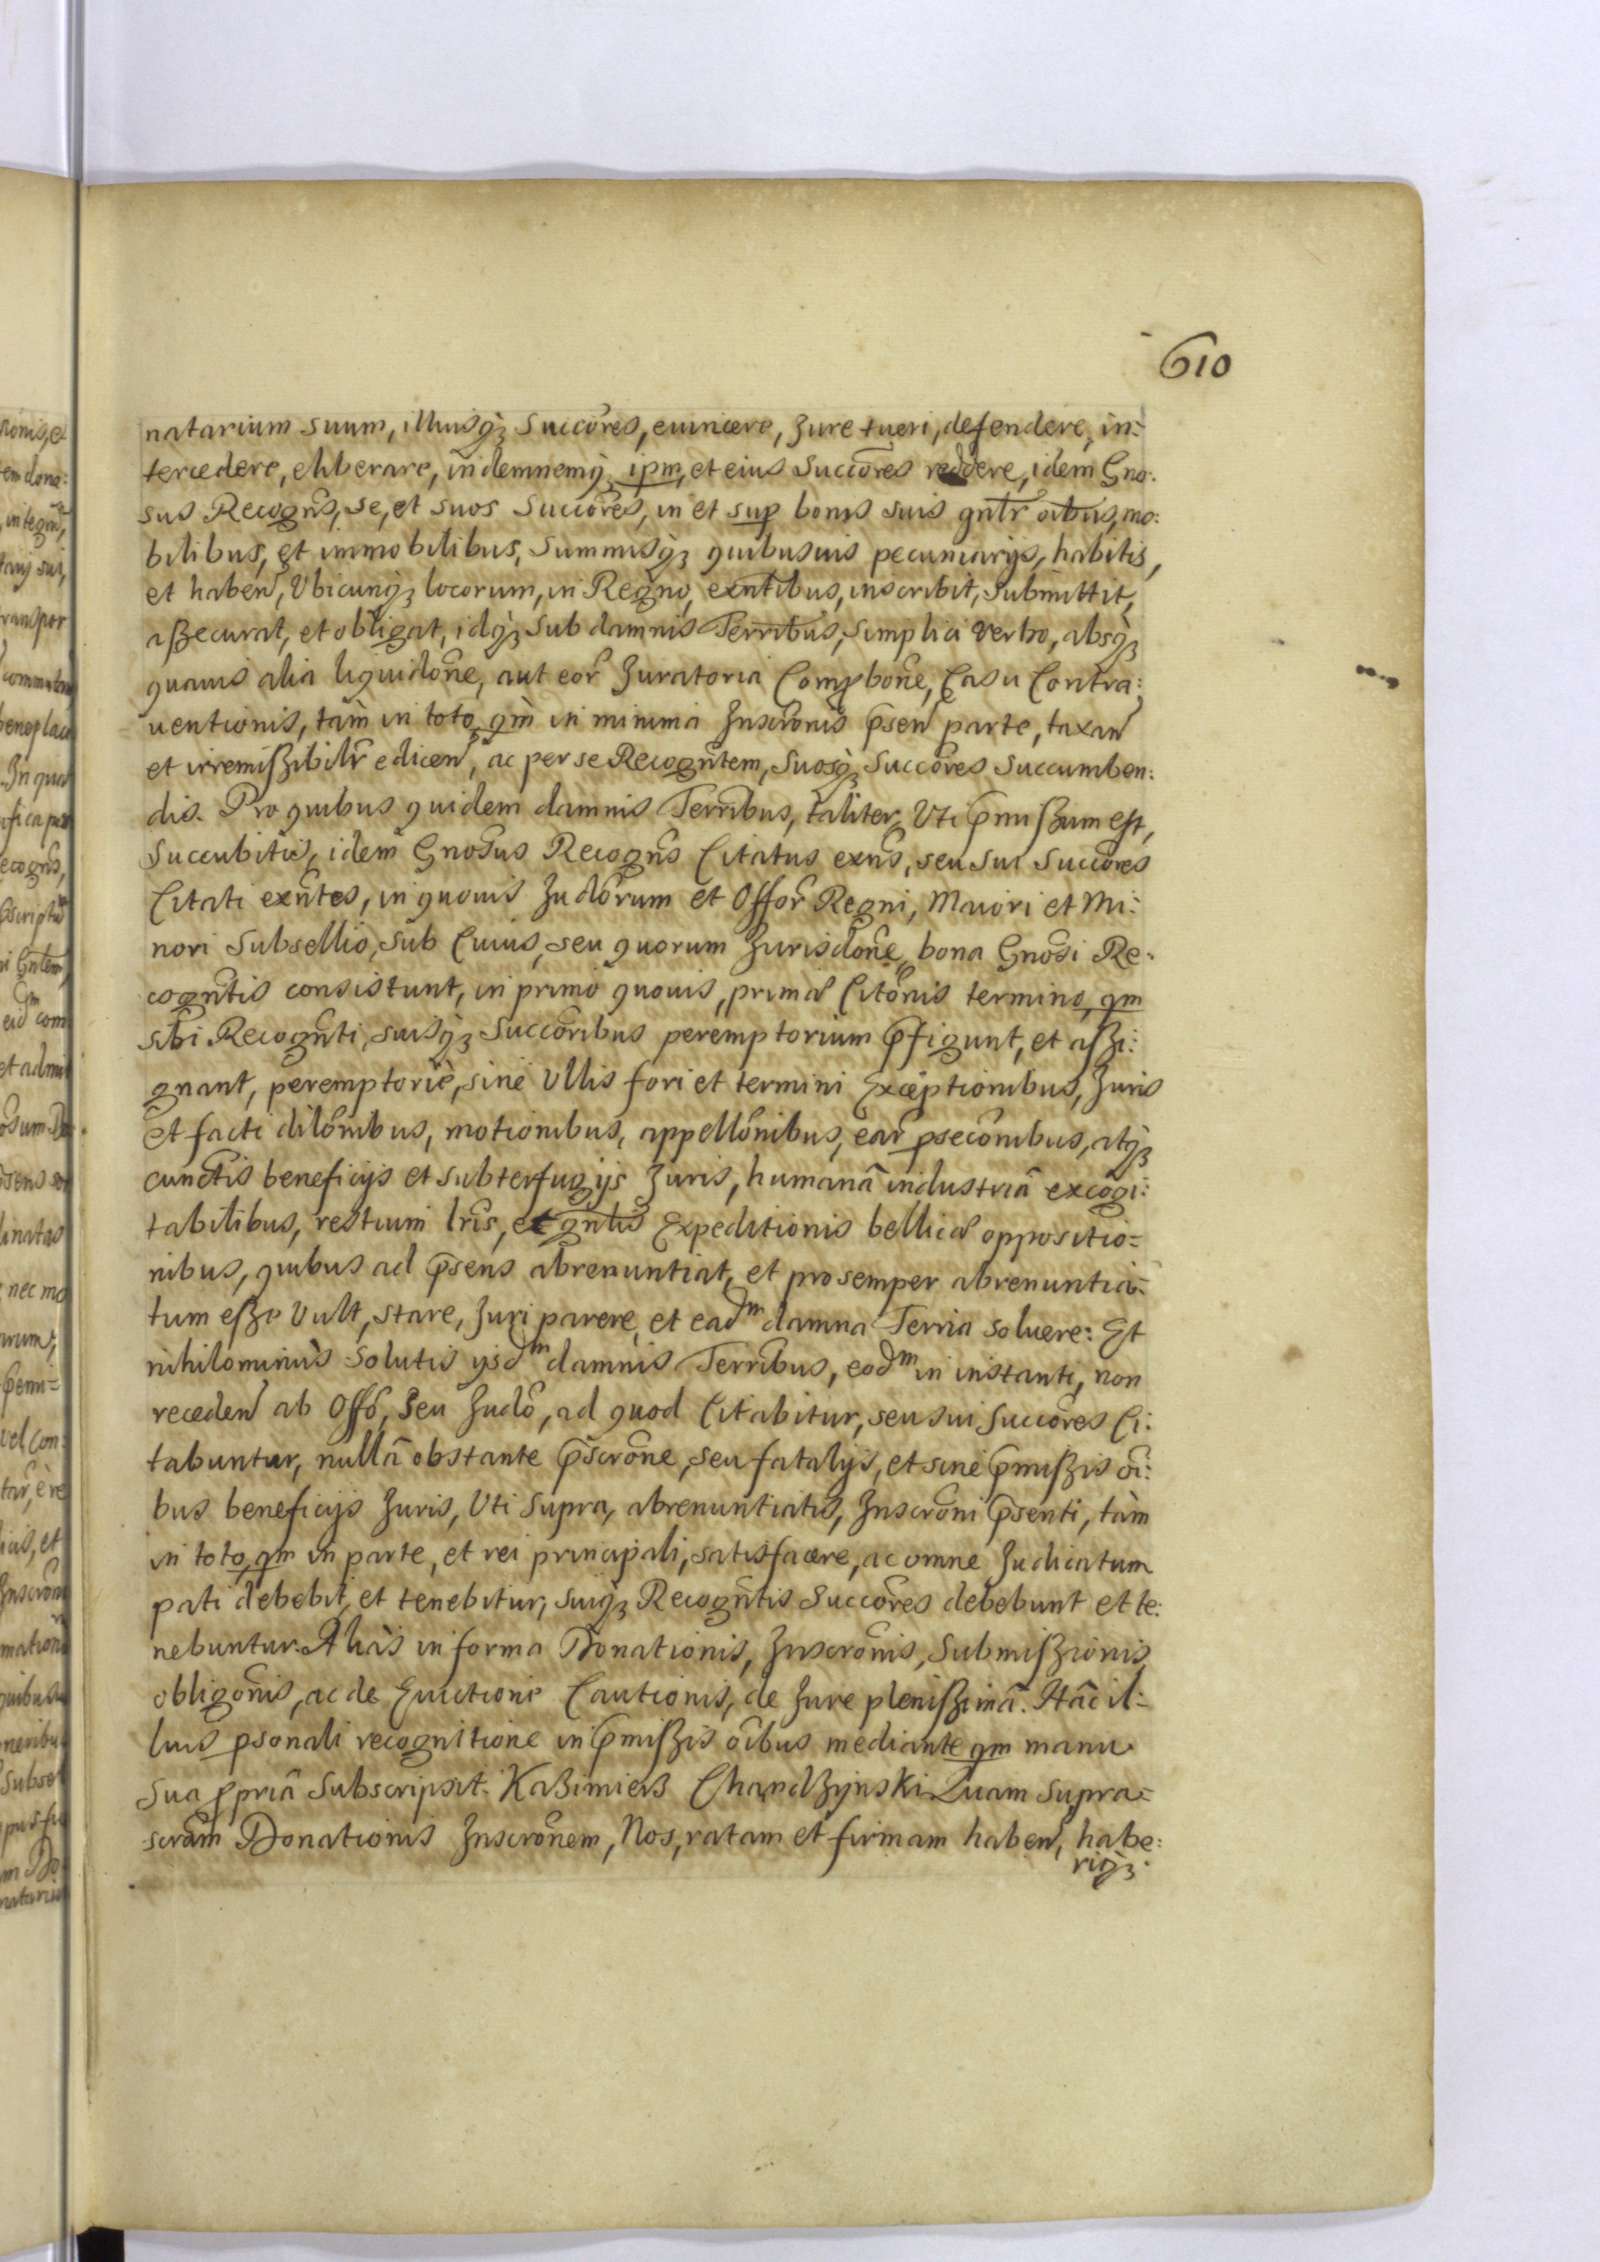 610
natarium suum, illiusq₃ Succōres, euincere, Jure tueri, defendere, in:
tercedere, eliberare, indemnemq₃ ipm, et eius Succōres reddere, idem Gno:
sus Recogn̄s, se, et suos Succōres, in et sup bonis suis gnlr̄ oībus, mo:
bilibus, et immobilibus, Summisq₃ quibusuis pecuniarijs, habitis,
et haben̄, Vbicunq₃ locorum, in Regno, exn̄tibus, inscribit, Submittit,
aßecurat, et obligat, idq₃ Sub damnis Terribus, Simplici Verbo, absq₃
quauis alia liquidōne, aut eor̄ Juratoria Compbōne, Casu Contra:
uentionis, tàm in toto, qm̀ in minima Inscrōnis p̄sen̄ parte, taxan̄
et irremißibilr̄ edicen̄, ac per se Recogn̄tem, Suosq₃ Succōres Succumben:
dis. Pro quibus quidem damnis Terribus, taliter, Vti p̄mißum est,
Succubitis, idem Gnosus Recogn̄s Citatus exn̄s, seu sui Succōres
Citati exn̄tes, in quouis Judōrum et Offōr Regni, Maiori et Mi:
nori Subsellio, Sub Cuius, seu quorum Jurisdōne, bona Gnōsi Re:
cogn̄tis consistunt, in primo quouis, primæ Citōnis termino, qm
sibi Recogn̄ti, suisq₃ Succōribus peremptorium p̄figunt, et aßi:
gnant, peremptoriè, sine Vllis fori et termini Exceptionibus, Juris
et facti dilōnibus, motionibus, appellōnibus, ear̄ psecōnibus, atq₃
cunctis beneficijs et subterfugijs Juris, humanâ industriâ excogi:
tabilibus, restium lrīs, et gnlis Expeditionis bellicæ oppositio=
nibus, quibus ad p̄sens abrenuntiat, et pro semper abrenuntia=
tum eße Vult, stare, Juri parere, et eadᵐ damna Terria soluere: Et
nihilominùs Solutis ijsdᵐ damnis Terribus, eodᵐ in instanti, non
receden̄ ab Offō, Seu Judō, ad quod Citabitur, seu sui Succōres Ci:
tabuntur, nullâ obstante p̄scrōne, seu fatalijs, et sine p̄mißis oī:
bus beneficijs Juris, Vti Supra, abrenuntiatis, Inscrōni p̄senti, tàm
in toto, qm in parte, et rei principali, satisfacere, ac omne Judicatum
pati debebit, et tenebitur, Suiq₃ Recogn̄tis Succōres debebunt et te:
nebuntur. Aliàs in forma Donationis, Inscrōnis, Submißionis,
obligōnis, ac de Euictione Cautionis, de Jure plenißimâ. Hâc il:
lius psonali recognitione in p̄mißis oībus mediante, qm manu
Sua ppriâ Subscripsit. Kaźimierz Chandzynski Quam Supra=
scrām Donationis Inscrōnem, Nos, ratam et firmam haben̄, habe:
riq₃